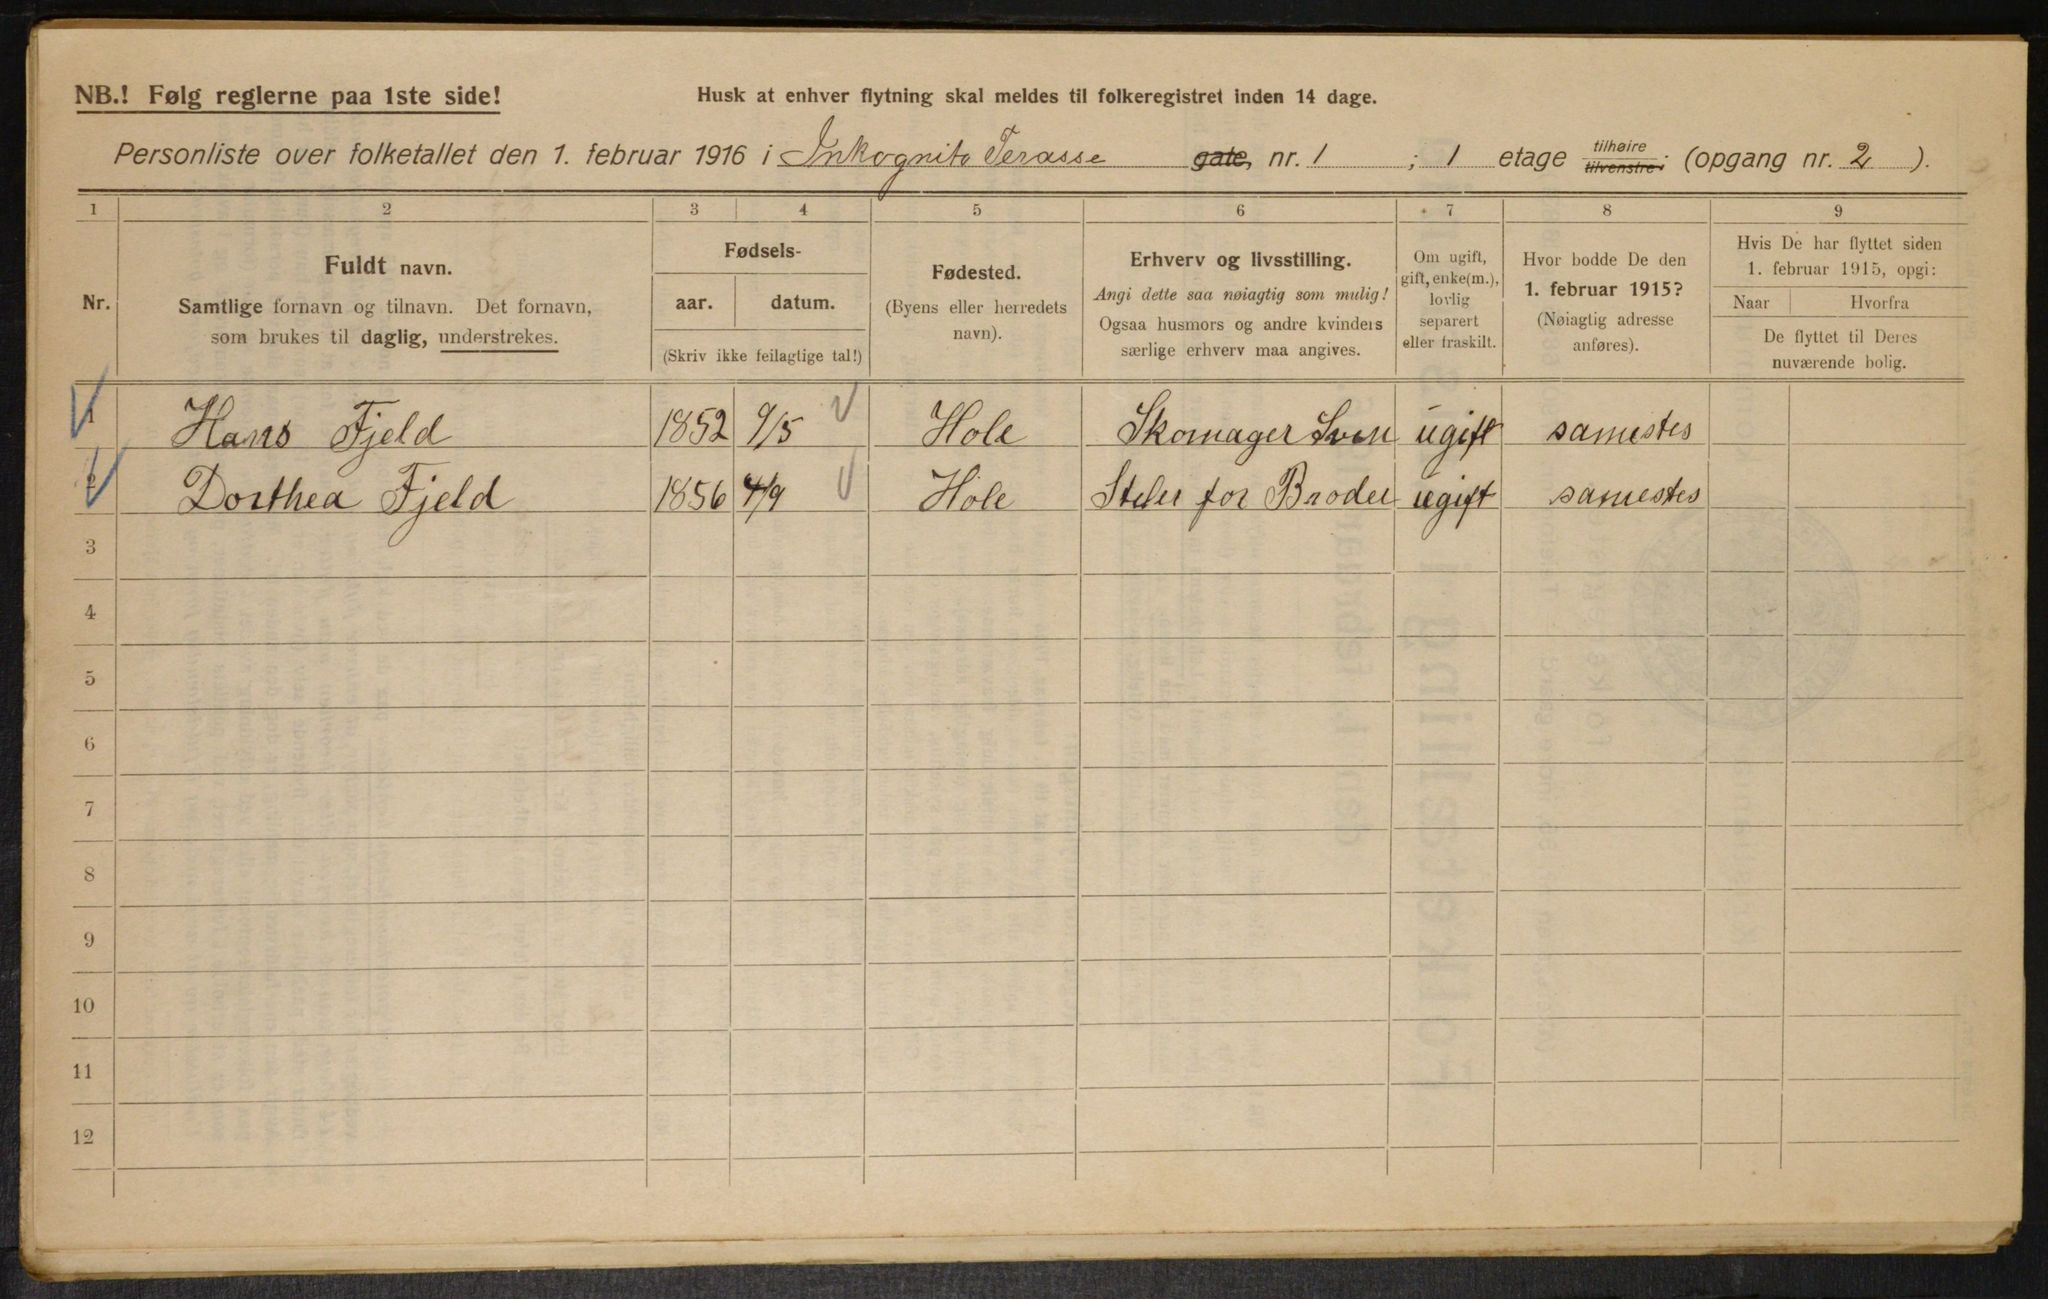 NB.! Følg reglerne paa 1ste side!
Husk at enhver flytning skal meldes til folkeregistret inden 14 dage.
Personliste over folketallet den 1. februar 1916 i Inkognito Terasse gate, nr. 1 ; 1 etage tilhøire tilvenstre; (opgang nr. 2 ).
1 2 3 4 5 6 7 8 9
Nr.
Fuldt navn.
Samtlige fornavn og tilnavn. Det fornavn,
som brukes til daglig, understrekes.
Fødsels-
aar. datum.
(Skriv ikke feilagtige tal!)
Fødested.
(Byens eller herredets
navn).
Erhverv og livsstilling.
Angi dette saa nøiagtig som mulig!
Ogsaa husmors og andre kvinders
særlige erhverv maa angives.
Om ugift,
gift, enke(m.),
lovlig
separert
eller fraskilt.
Hvor bodde De den
1. februar 1915?
(Nøiagtig adresse
anføres).
Hvis De har flyttet siden
1. februar 1915, opgi:
Naar Hvorfra
De flyttet til Deres
nuværende bolig.
1 Hans Fjeld 1852 9/5 Hole Skomager Sven ugift samestes
2 Dorthea Fjeld 1856 4/9 Hole Steler for Broder ugift samestes
3
4
5
6
7
8
9
10
11
12